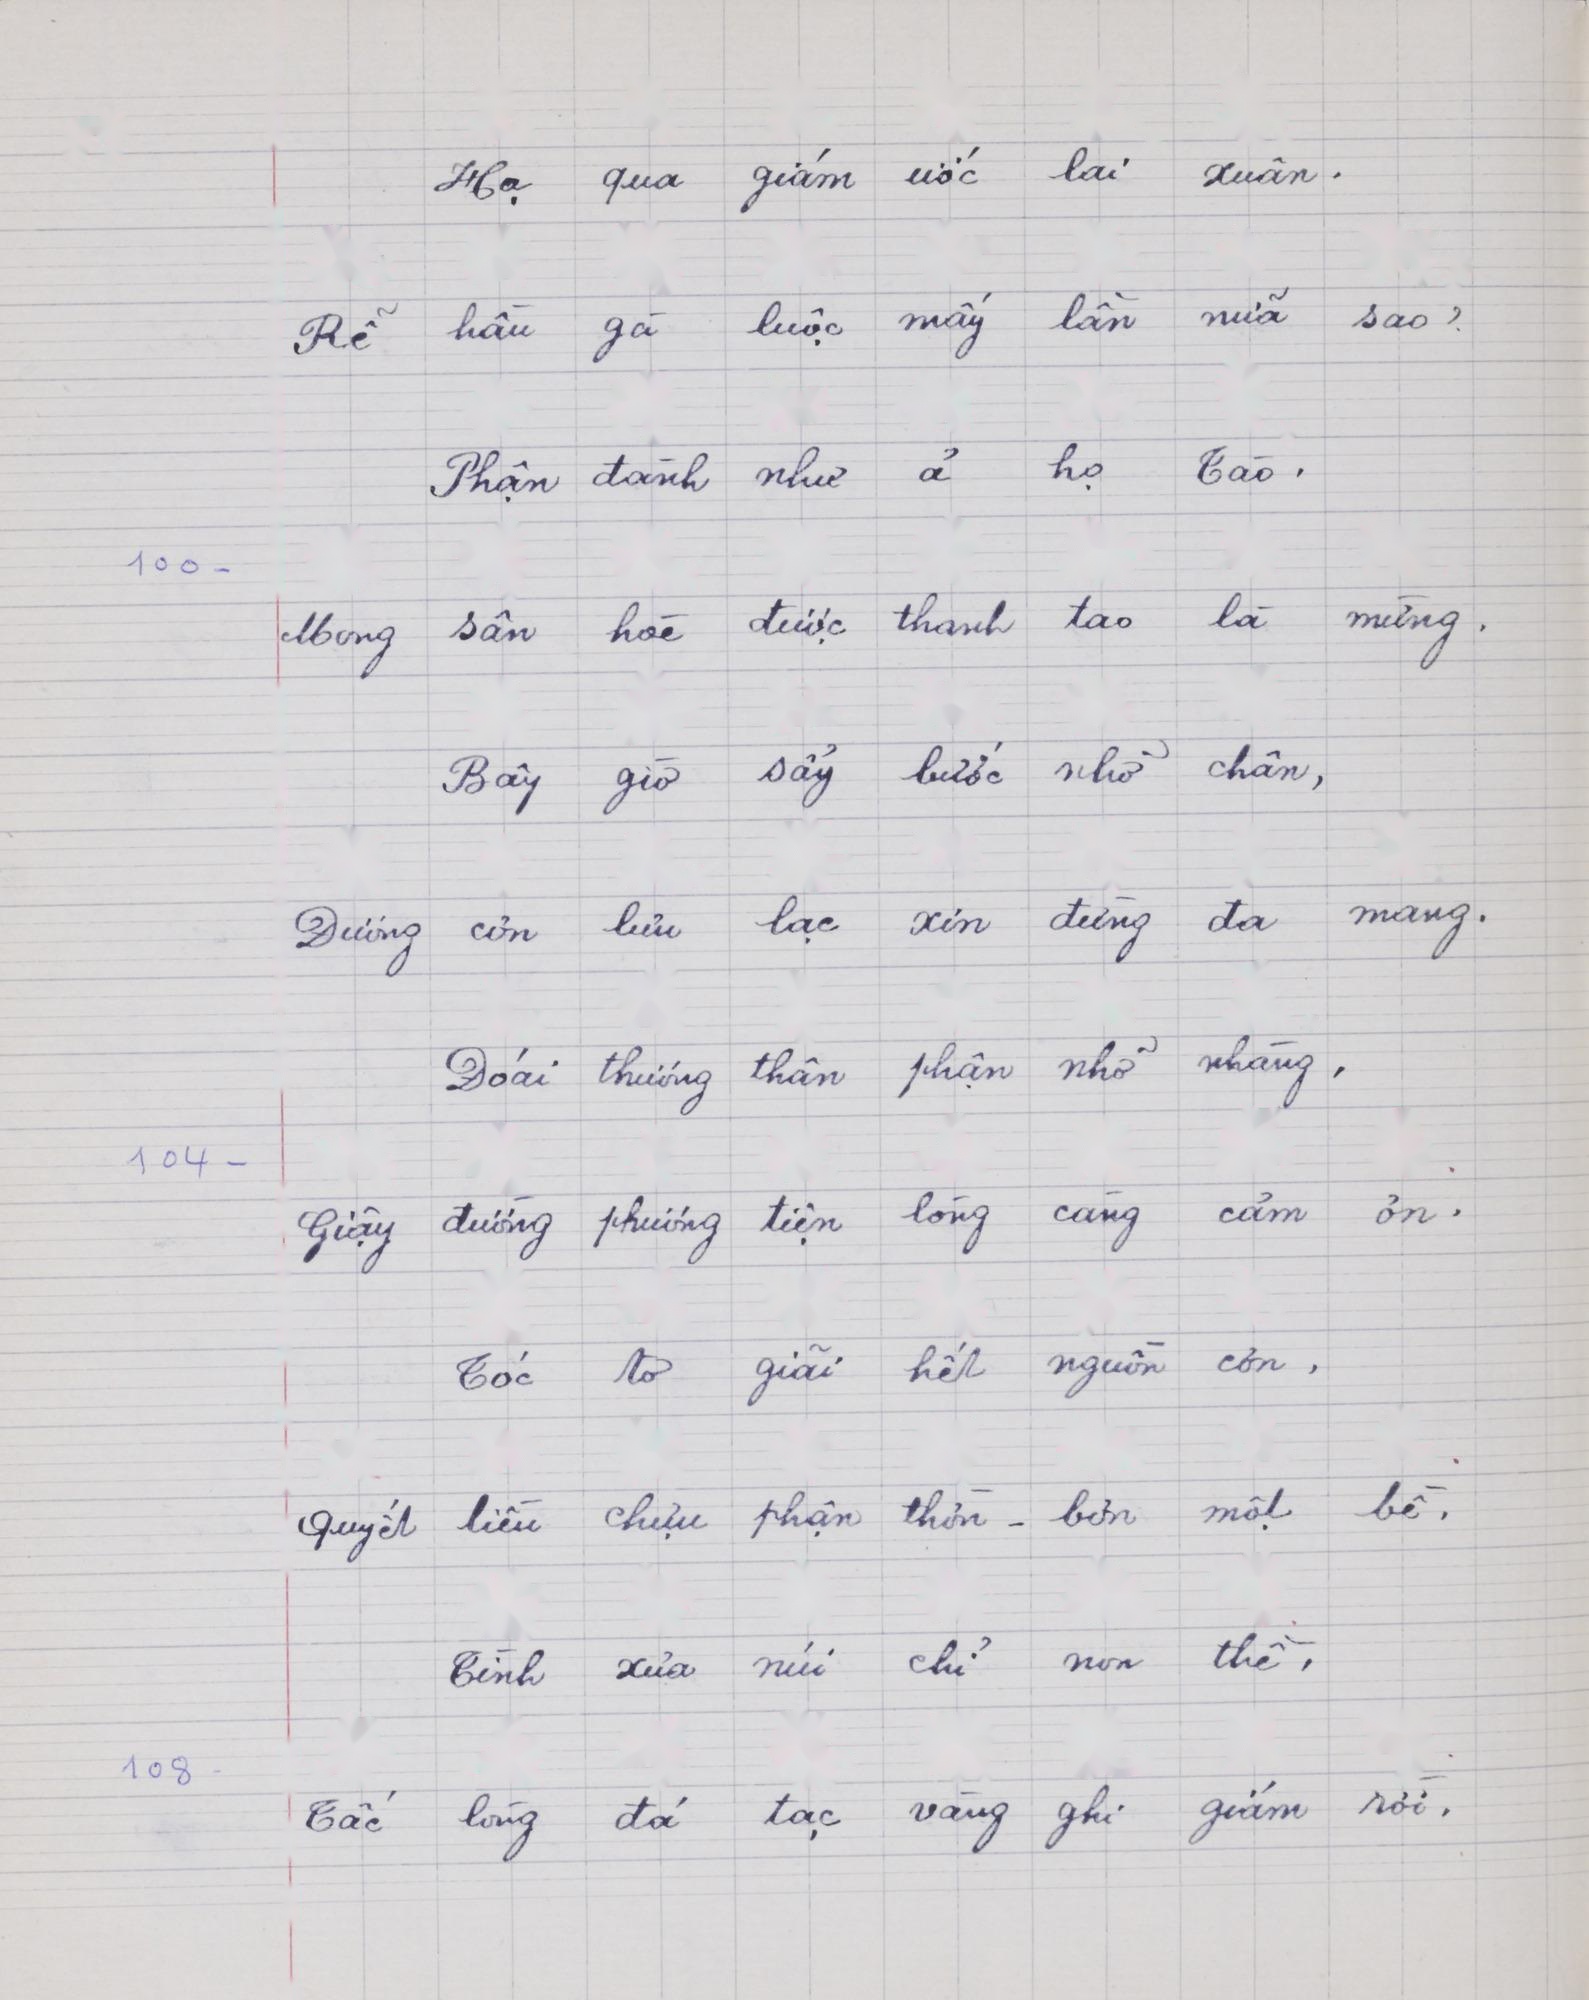 Hạ qua giám ước lai xuân.
Rễ hầu gà luộc mấy lần nữa sao?
Phận đành như ả họ Tào,
100-
Mong sân hoè được thanh tao là mừng.
Bây giờ sẩy bước nhỡ chân,
Đương cơn lưu lạc xin đừng đa mang.
Đoái thương thân phận nhỡ nhàng,
104-
Giậy đường phương tiện lòng càng cảm ơn.
Tóc tơ giãi hết nguồn cơn,
Quyết liều chựu phận thờn-bơn một bề,
Tình xưa núi chỉ non thề,
108-
Tấc lòng đá tạc vàng ghi giám rời,